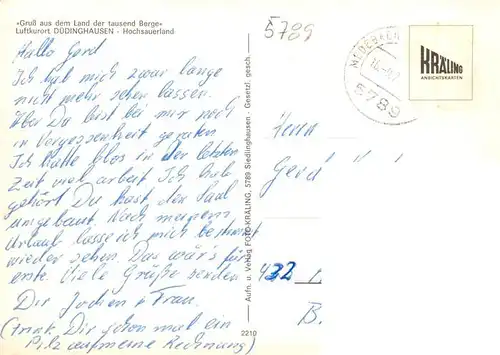 »Gruß aus dem Land der tausend Berge«
Luftkurort DÜDINGHAUSEN · Hochsauerland
5789
Hallo Gerd
Ich hab mich zwar lange
nicht mehr sehen lassen.
Aber Du bist bei mir noch
in Vergessenheit geraten
Ich hatte blos in der letzten
Zeit viel arbeit Ich hab
gehört Du hast den Saal
umgebaut. Nach meinem
Urlaub lasse ich mich bestimmt
wieder sehen. Das wär's fürs
erste. Viele Grüße senden
Dir Jochen + Frau.
(Trink Dir schon mal ein
Pilz auf meine Rechnung)
Aufn. u. Verlag FOTO-KRÄLING, 5789 Siedlinghausen · Gesetzl. gesch.
2210
MEDEBACH
5789
KRÄLING
ANSICHTSKARTEN
Herrn
Gerd
432 L.
B.